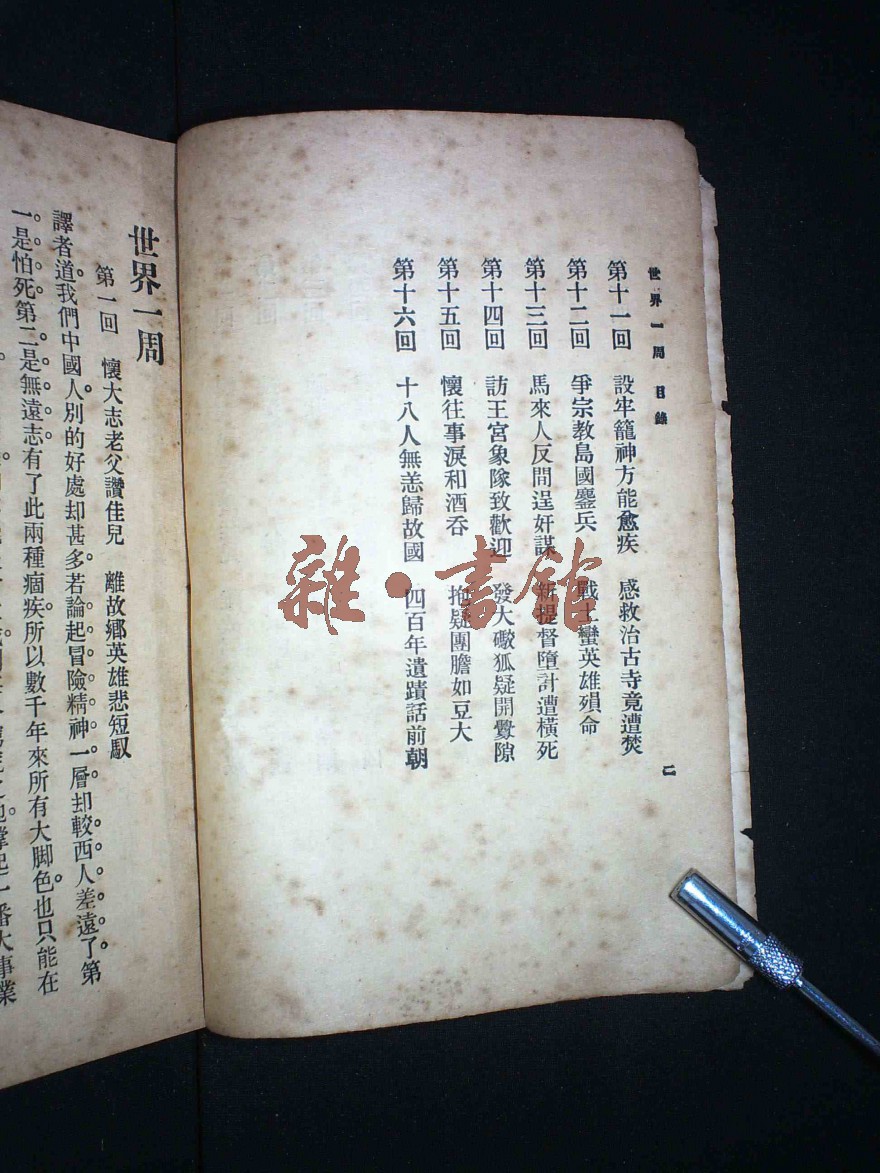 世界一周 目錄
第十一回 設牢籠神方能愈疾 感救治古寺竟遭焚
第十二回 爭宗教島國鏖兵 戰士蠻英雄殞命
第十三回 馬來人反間逞奸謀 新提督墮計遭橫死
第十四回 訪王宮象隊致歡迎 發大礮狐疑開釁隙
第十五回 懷往事淚和酒吞 抱疑團膽如豆大
第十六回 十八人無恙歸故國 四百年遺蹟話前朝
二
世界一周
第一回 懷大志老父讚佳兒 離故鄉英雄悲短馭
譯者道我們中國人別的好處却甚多若論起冒險精神一層却較西人差遠了。第
一是怕死第二是無遠志有了此兩種痼疾所以數千年來所有大脚色也只能在
番大事業
雜·書館